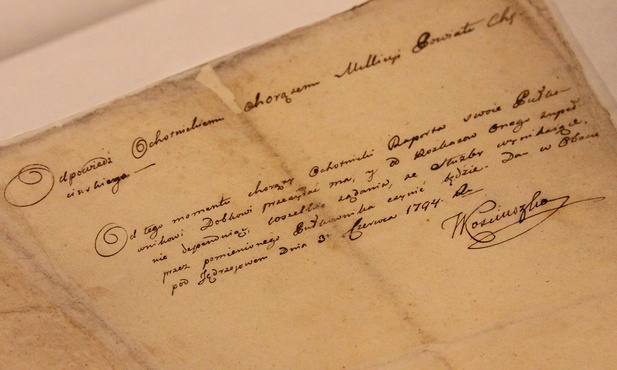 Odpowiedź Ochotnickiemu Chorążemu Millicyi Powiatu Chę-
cińskiego —
Od tego momentu chorąży Ochotnicki Raporta swoie Pułko-
wnikowi Dobkowi przesyłać ma, y od Rozkazow Onego zupeł
nie dependuiąc, wszelkie żądania, ze Służby wynikaiące,
przez pomienionego Pułkownika czynić będzie. Dan w Obozie
pod Jędrzejowem Dnia 3. Czerwca 1794. R
TKosciuszko